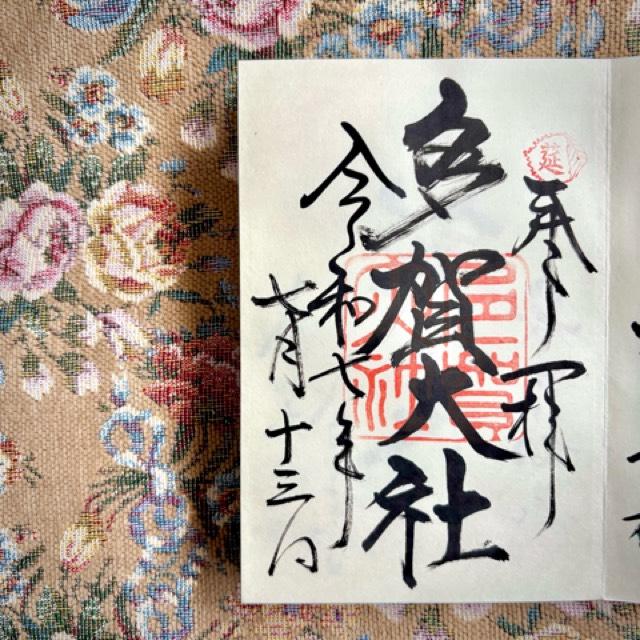 奉拝
多賀大社
令和七年
月十三日
延